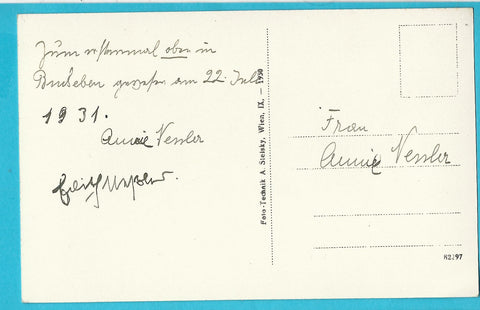 Zum erstenmal oben in
gewesen am 22. Juli
1931.
Annie Vessler
Foto-Technik A. Stefsky, Wien, IX, — 1930
Frau
Annie Vessler